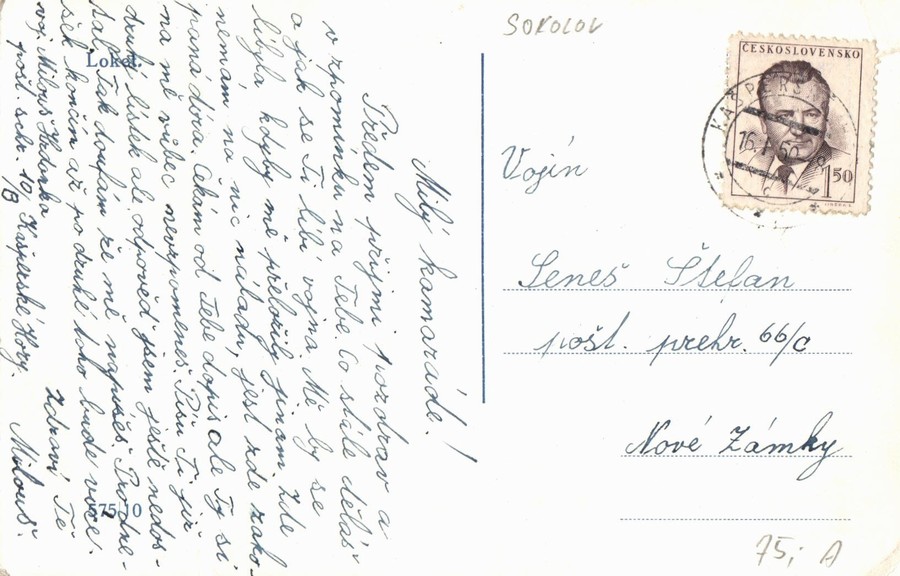 SOKOLOV
Loket.
Milý kamaráde!
Předem přijmi pozdrav a
vzpomínku na Tebe. Co stále děláš
a jak se Ti líbí vojna. Mě by se
líbyla kdyby mě přeložily jinam. Zde
nemám na nic náladu, jest zde zako-
paná dóra. Čekám od Tebe dopis ale Ty si
na mě vůbec nevzpomeneš. Píšu Ti již
druhý lístek ale odpověď jsem ještě nedos-
tal. Tak doufám že mě napíšeš. Pro dne-
šek končím až po druhé toho bude více.
Zdraví Tě
Milouš.
voj. Milouš
pošt. schr. 10/B Kašperské Hory.
575/10
ČESKOSLOVENSKO
1 50
KAŠPERSKÉ
16. 50
Vojín
Seneš Štefan
pošt. prehr. 66/C
Nové Zámky
75,- A